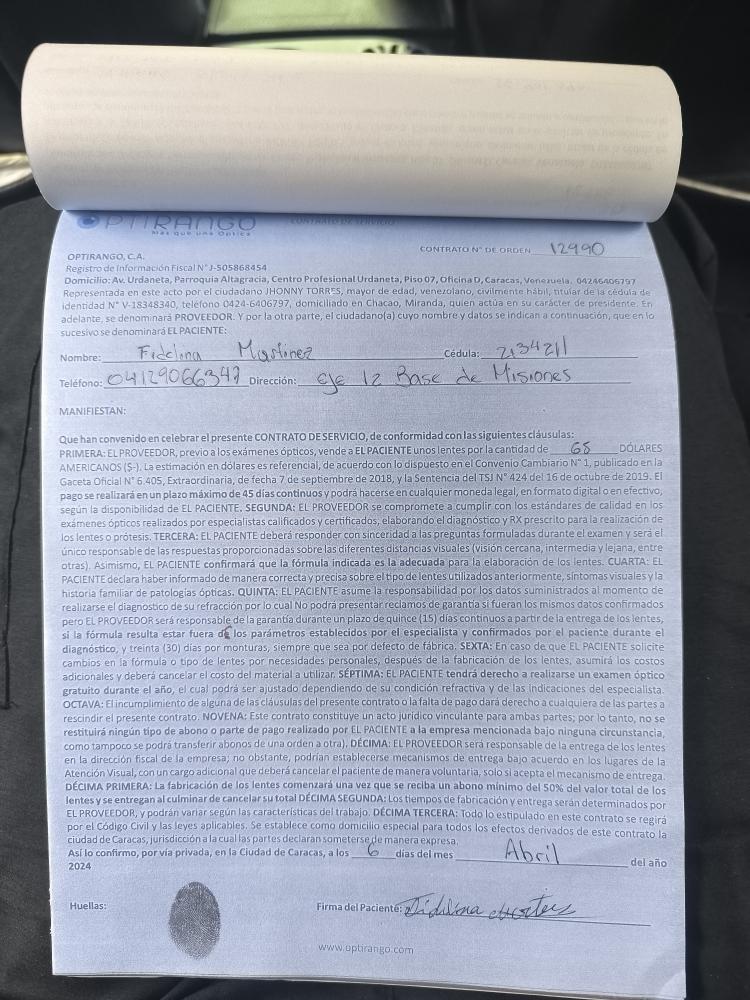 OPTIRANGO
Más que una Óptica
CONTRATO DE SERVICIO
CONTRATO N° DE ORDEN 12990
OPTIRANGO, C.A.
Registro de Información Fiscal N° J-505868454
Domicilio: Av. Urdaneta, Parroquia Altagracia, Centro Profesional Urdaneta, Piso 07, Oficina D, Caracas, Venezuela. 04246406797
Representada en este acto por el ciudadano JHONNY TORRES, mayor de edad, venezolano, civilmente hábil, titular de la cédula de
identidad N° V-18348340, teléfono 0424-6406797, domiciliado en Chacao, Miranda, quien actúa en su carácter de presidente. En
adelante, se denominará PROVEEDOR. Y por la otra parte, el ciudadano(a) cuyo nombre y datos se indican a continuación, que en lo
sucesivo se denominará EL PACIENTE:
Nombre: Fidelina Martinez Cédula: 2134211
Teléfono: 04129066347 Dirección: eje 12 Base de Misiones
MANIFIESTAN:
Que han convenido en celebrar el presente CONTRATO DE SERVICIO, de conformidad con las siguientes cláusulas:
PRIMERA: EL PROVEEDOR, previo a los exámenes ópticos, vende a EL PACIENTE unos lentes por la cantidad de 65 DÓLARES
AMERICANOS ($-). La estimación en dólares es referencial, de acuerdo con lo dispuesto en el Convenio Cambiario N° 1, publicado en la
Gaceta Oficial N° 6.405, Extraordinaria, de fecha 7 de septiembre de 2018, y la Sentencia del TSJ N° 424 del 16 de octubre de 2019. El
pago se realizará en un plazo máximo de 45 días continuos y podrá hacerse en cualquier moneda legal, en formato digital o en efectivo,
según la disponibilidad de EL PACIENTE. SEGUNDA: EL PROVEEDOR se compromete a cumplir con los estándares de calidad en los
exámenes ópticos realizados por especialistas calificados y certificados, elaborando el diagnóstico y RX prescrito para la realización de
los lentes o prótesis. TERCERA: EL PACIENTE deberá responder con sinceridad a las preguntas formuladas durante el examen y será el
único responsable de las respuestas proporcionadas sobre las diferentes distancias visuales (visión cercana, intermedia y lejana, entre
otras). Asimismo, EL PACIENTE confirmará que la fórmula indicada es la adecuada para la elaboración de los lentes. CUARTA: EL
PACIENTE declara haber informado de manera correcta y precisa sobre el tipo de lentes utilizados anteriormente, síntomas visuales y la
historia familiar de patologías ópticas. QUINTA: EL PACIENTE asume la responsabilidad por los datos suministrados al momento de
realizarse el diagnostico de su refracción por lo cual No podrá presentar reclamos de garantía si fueran los mismos datos confirmados
pero EL PROVEEDOR será responsable de la garantía durante un plazo de quince (15) días continuos a partir de la entrega de los lentes,
si la fórmula resulta estar fuera de los parámetros establecidos por el especialista y confirmados por el paciente durante el
diagnóstico, y treinta (30) días por monturas, siempre que sea por defecto de fábrica. SEXTA: En caso de que EL PACIENTE solicite
cambios en la fórmula o tipo de lentes por necesidades personales, después de la fabricación de los lentes, asumirá los costos
adicionales y deberá cancelar el costo del material a utilizar. SÉPTIMA: EL PACIENTE tendrá derecho a realizarse un examen óptico
gratuito durante el año, el cual podrá ser ajustado dependiendo de su condición refractiva y de las indicaciones del especialista.
OCTAVA: El incumplimiento de alguna de las cláusulas del presente contrato o la falta de pago dará derecho a cualquiera de las partes a
rescindir el presente contrato. NOVENA: Este contrato constituye un acto jurídico vinculante para ambas partes; por lo tanto, no se
restituirá ningún tipo de abono o parte de pago realizado por EL PACIENTE a la empresa mencionada bajo ninguna circunstancia,
como tampoco se podrá transferir abonos de una orden a otra). DÉCIMA: EL PROVEEDOR será responsable de la entrega de los lentes
en la dirección fiscal de la empresa; no obstante, podrían establecerse mecanismos de entrega bajo acuerdo en los lugares de la
Atención Visual, con un cargo adicional que deberá cancelar el paciente de manera voluntaria, solo si acepta el mecanismo de entrega.
DÉCIMA PRIMERA: La fabricación de los lentes comenzará una vez que se reciba un abono mínimo del 50% del valor total de los
lentes y se entregan al culminar de cancelar su total DÉCIMA SEGUNDA: Los tiempos de fabricación y entrega serán determinados por
EL PROVEEDOR, y podrán variar según las características del trabajo. DÉCIMA TERCERA: Todo lo estipulado en este contrato se regirá
por el Código Civil y las leyes aplicables. Se establece como domicilio especial para todos los efectos derivados de este contrato la
ciudad de Caracas, jurisdicción a la cual las partes declaran someterse de manera expresa.
Así lo confirmo, por vía privada, en la Ciudad de Caracas, a los 6 días del mes Abril del año
2024
Huellas:
Firma del Paciente: Fidelina
www.optirango.com